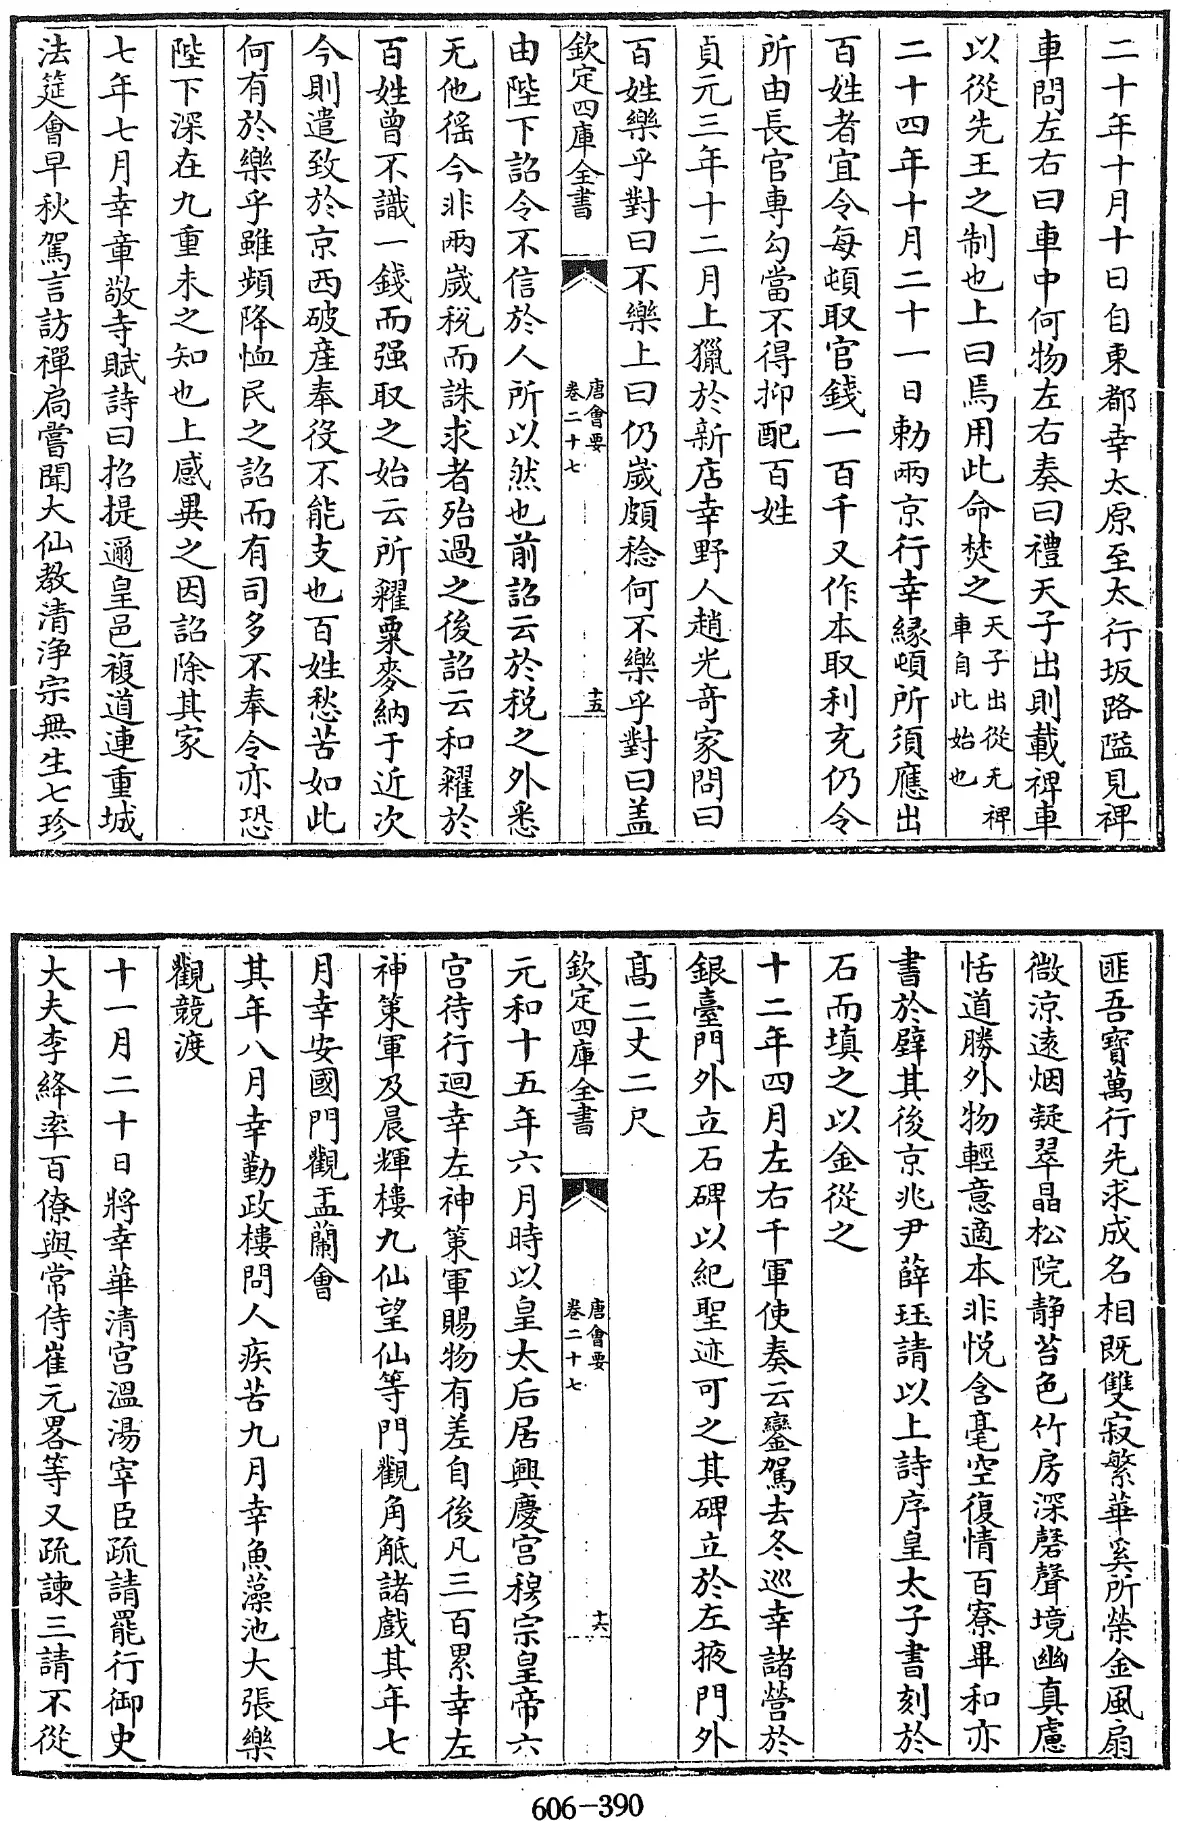 二十年十月十日自東都幸太原至太行坂路隘見椑
車問左右曰車中何物左右奏曰禮天子出則載椑車
以從先王之制也上曰焉用此命焚之天子出從无椑
車自此始也
二十四年十月二十一日勅兩京行幸縁頓所須應出
百姓者宜令每頓取官錢一百千又作本取利充仍令
所由長官專勾當不得抑配百姓
貞元三年十二月上獵於新店幸野人趙光竒家問曰
百姓樂乎對曰不樂上曰仍嵗頗稔何不樂乎對曰盖
欽定四庫全書
唐會要
卷二十七
十五
由陛下詔令不信於人所以然也前詔云於税之外悉
无他徭今非兩嵗税而誅求者殆過之後詔云和糴於
百姓曽不識一錢而强取之始云所糴粟麥納于近次
今則遣致於京西破産奉役不能支也百姓愁苦如此
何有於樂乎雖頻降恤民之詔而有司多不奉令亦恐
陛下深在九重未之知也上感異之因詔除其家
七年七月幸章敬寺賦詩曰招提邇皇邑複道連重城
法筵會早秋駕言訪禪扃嘗聞大仙教清浄宗無生七珍
匪吾寶萬行先求成名相既雙寂繁華奚所榮金風扇
微涼逺烟凝翠晶松院静苔色竹房深磬聲境幽真慮
恬道勝外物輕意適本非悦含毫空復情百寮畢和亦
書於壁其後京兆尹薛珏請以上詩序皇太子書刻於
石而填之以金從之
十二年四月左右千軍使奏云鑾駕去冬巡幸諸營於
銀臺門外立石碑以紀聖迹可之其碑立於左掖門外
髙二丈二尺
欽定四庫全書
唐會要
卷二十七
十六
元和十五年六月時以皇太后居興慶宫穆宗皇帝六
宫待行迴幸左神策軍賜物有差自後凡三百累幸左
神策軍及晨輝樓九仙望仙等門觀角觝諸戲其年七
月幸安國門觀盂蘭會
其年八月幸勤政樓問人疾苦九月幸魚藻池大張樂
觀競渡
十一月二十日將幸華清宫溫湯宰臣疏請罷行御史
大夫李絳率百僚與常侍崔元畧等又疏諫三請不從
606-390